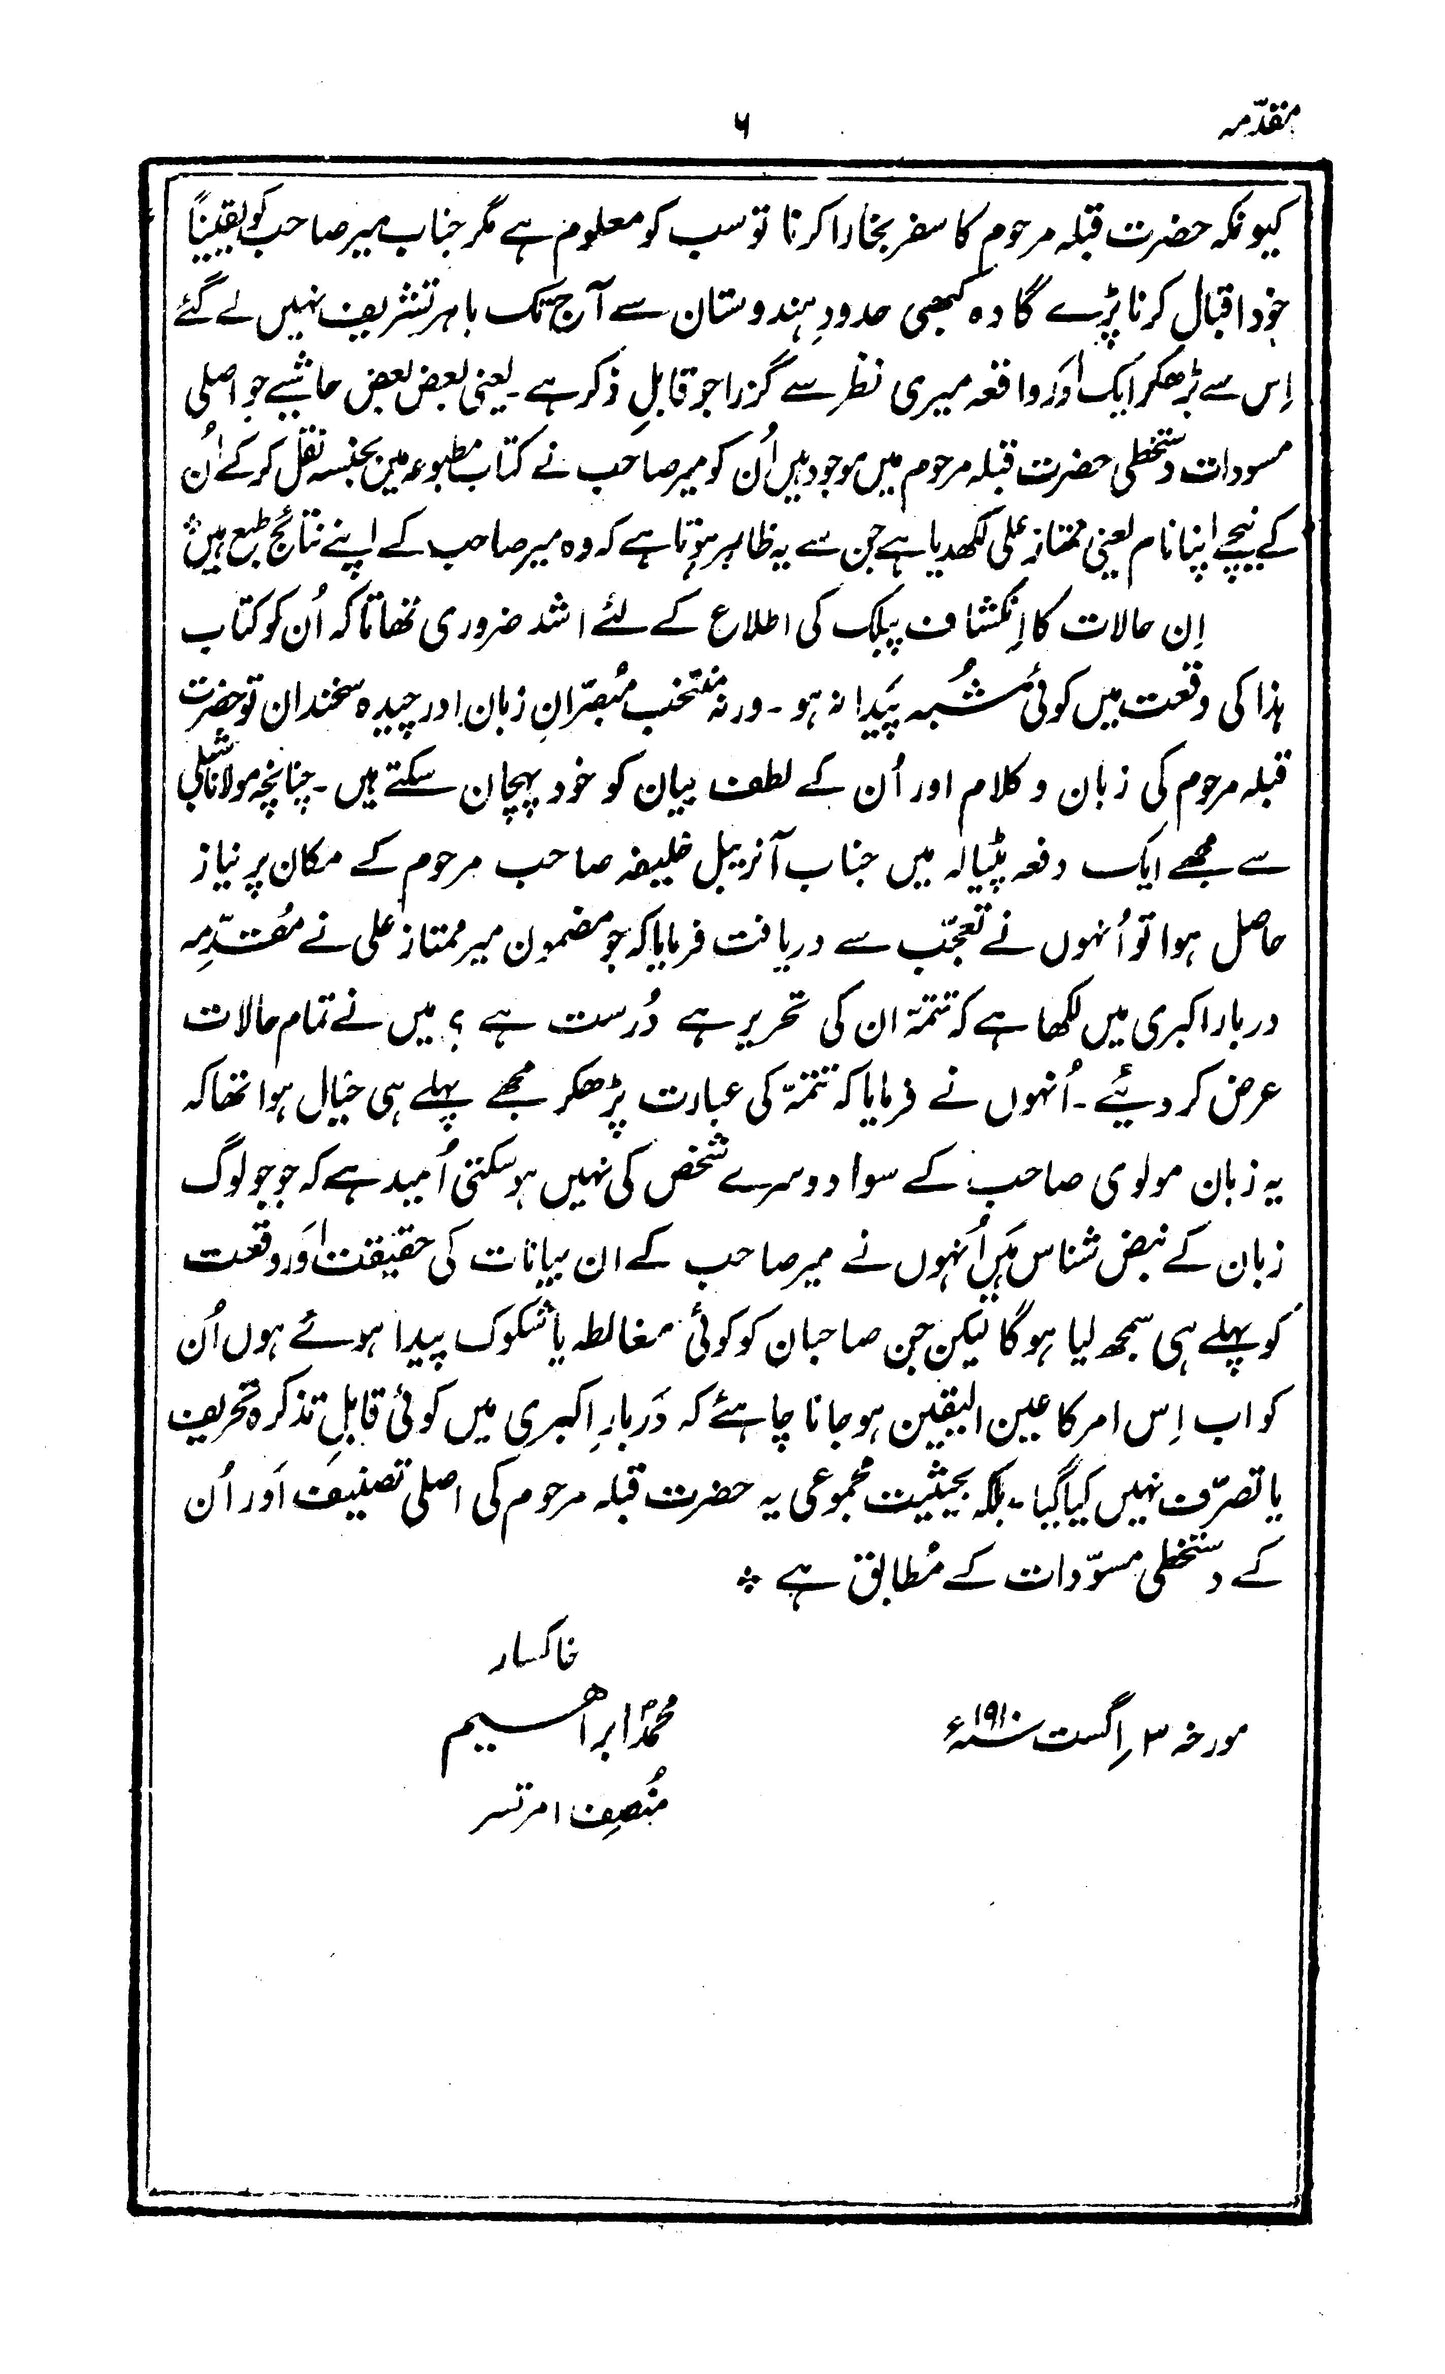 مقدّمہ
۶
کیونکہ حضرت قبلہ مرحوم کا سفر بخارا کرنا تو سب کو معلوم ہے مگر جناب میر صاحب کو یقیناً
خود اقبال کرنا پڑے گا وہ کبھی حدودِ ہندوستان سے آج تک باہر تشریف نہیں لے گئے
اِس سے بڑھکر ایک اَور واقعہ میری نظر سے گزرا جو قابلِ ذکر ہے ۔ یعنی بعض بعض حاشیے جو اصلی
مسودات دستخطی حضرت قبلہ مرحوم میں موجود ہیں اُن کو میر صاحب نے کتاب مطبوعہ مین بجنسہ نقل کر کے اُن
کے نیچے اپنا نام یعنی ممتاز علی لکھدیا ہے جن سے یہ ظاہر ہوتا ہے کہ وہ میر صاحب کے اپنے نتائج طبع ہیں ؞
اِن حالات کا اِنکشاف پبلک کی اطلاع کے لئے اشد ضروری تھا تا کہ اُن کو کتاب
ہذا کی وقعت میں کوئی شُبہ پَیدا نہ ہو ۔ ورنہ منتخب مُبصّرانِ زبان اور چیدہ سخندان تو حضرت
قبلہ مرحوم کی زبان و کلام اور اُن کے لطف بیان کو خود پہچان سکتے ہیں ۔ چنانچہ مولانا شبلی
سے مجھے ایک دفعہ پٹیالہ میں جناب آنریبل خلیفہ صاحب مرحوم کے مکان پر نیاز
حاصل ہوا تو اُنہوں نے تعجّب سے دریافت فرمایا کہ جو مضمون میر ممتاز علی نے مُقدّمِہ
دربار اکبری میں لکھا ہے کہ تتمّہ ان کی تحریر ہے دُرست ہے ؟ میں نے تمام حالات
عرض کر دیئے ۔ اُنہوں نے فرمایا کہ تتمّہ کی عبارت پڑھکر مجھے پہلے ہی خیال ہوا تھا کہ
یہ زبان مولوی صاحب کے سوا دوسرے شخص کی نہیں ہو سکتی اُمید ہے کہ جو جو لوگ
زبان کے نبض شناس ہَیں اُنہوں نے میر صاحب کے ان بیانات کی حقیقت اَور وقعت
کو پہلے ہی سمجھ لیا ہوگا لیکن جن صاحبان کو کوئی مغالطہ یا شکوک پیدا ہوئے ہوں اُن
کو اب اِس امر کا عین الیقین ہو جانا چاہئے کہ دَربارِ اکبری میں کوئی قابلِ تذکرہ تحریف
یا تصرّف نہیں کیا گیا ۔ بلکہ بحیثیت مجموعی یہ حضرت قبلہ مرحوم کی اصلی تصنیف اَور اُن
کے دستخطی مسوّدات کے مُطابق ہے ؞
خاکسار
محمدؐ ابراھیم
مورخہ ۳ اگست سنہ ۱۹۱۰ء
مُنصِف امرتسر